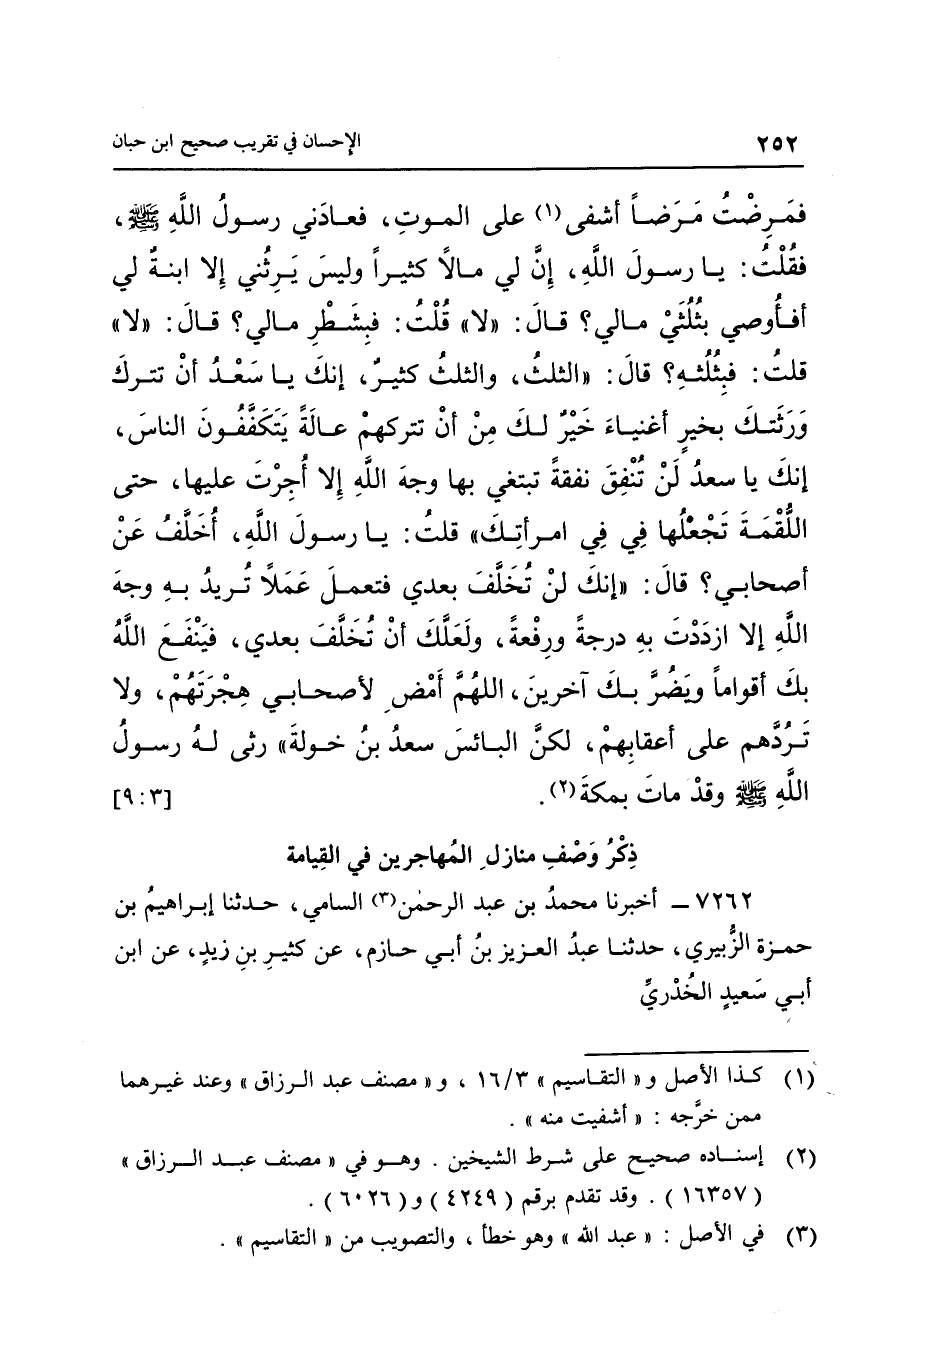 ٢٥٢ الإحسان في تقريب صحيح ابن حبان
فمَرِضْتُ مَرَضاً أشفى(١) على الموتِ، فعادَني رسولُ اللَّهِ ﷺ،
فقُلْتُ: يا رسولَ اللَّهِ، إنَّ لي مالاً كثيراً وليسَ يَرِثُني إلا ابنةٌ لي
أفأُوصي بثُلُثَيْ مالي؟ قالَ: «لا» قُلْتُ: فبِشَطْرِ مالي؟ قالَ: «لا»
قلتُ: فبِثُلُثهِ؟ قالَ: «الثلثُ، والثلثُ كثيرٌ، إنكَ يا سَعْدُ أنْ تتركَ
وَرَثَتكَ بخيرٍ أغنياءَ خَيْرٌ لكَ مِنْ أنْ تتركهمْ عالَةً يَتَكَفَّفُونَ الناسَ،
إنكَ يا سعدُ لَنْ تُنْفِقَ نفقةً تبتغي بها وجهَ اللَّهِ إلا أُجِرْتَ عليها، حتى
اللُّقْمَةَ تَجْعَلُها فِي فِي امرأتِكَ» قلتُ: يا رسولَ اللَّهِ، أُخَلَّفُ عَنْ
أصحابي؟ قالَ: «إنكَ لنْ تُخَلَّفَ بعدي فتعملَ عَمَلاً تُريدُ بهِ وجهَ
اللَّهِ إلا ازدَدْتَ بهِ درجةً ورِفْعةً، ولَعَلَّكَ أنْ تُخَلَّفَ بعدي، فيَنْفَعَ اللَّهُ
بكَ أقواماً ويَضُرَّ بكَ آخرينَ، اللهُمَّ أَمْضِ لأصحابي هِجْرَتَهُمْ، ولا
تَرُدَّهم على أعقابِهمْ، لكنَّ البائسَ سعدُ بنُ خولةَ» رثى لهُ رسولُ
اللَّهِ ﷺ وقدْ ماتَ بمكةَ(٢). [٩:٣]
ذِكْرُ وَصْفِ منازلِ المُهاجرين في القِيامة
٧٢٦٢ ــ أخبرنا محمدُ بن عبد الرحمٰن(٣) السامي، حدثنا إبراهيمُ بن
حمزة الزُّبيري، حدثنا عبدُ العزيز بنُ أبي حازم، عن كثيرِ بنِ زيدٍ، عن ابن
أبي سَعيدٍ الخُدْريِّ
(١) كذا الأصل و« التقاسيم » ١٦/٣ ، و« مصنف عبد الرزاق » وعند غيرهما
ممن خرَّجه : « أشفيت منه » .
(٢) إسناده صحيح على شرط الشيخين . وهو في « مصنف عبد الرزاق »
( ١٦٣٥٧ ) . وقد تقدم برقم ( ٤٢٤٩ ) و( ٦٠٢٦ ) .
(٣) في الأصل : « عبد الله » وهو خطأ ، والتصويب من « التقاسيم » .